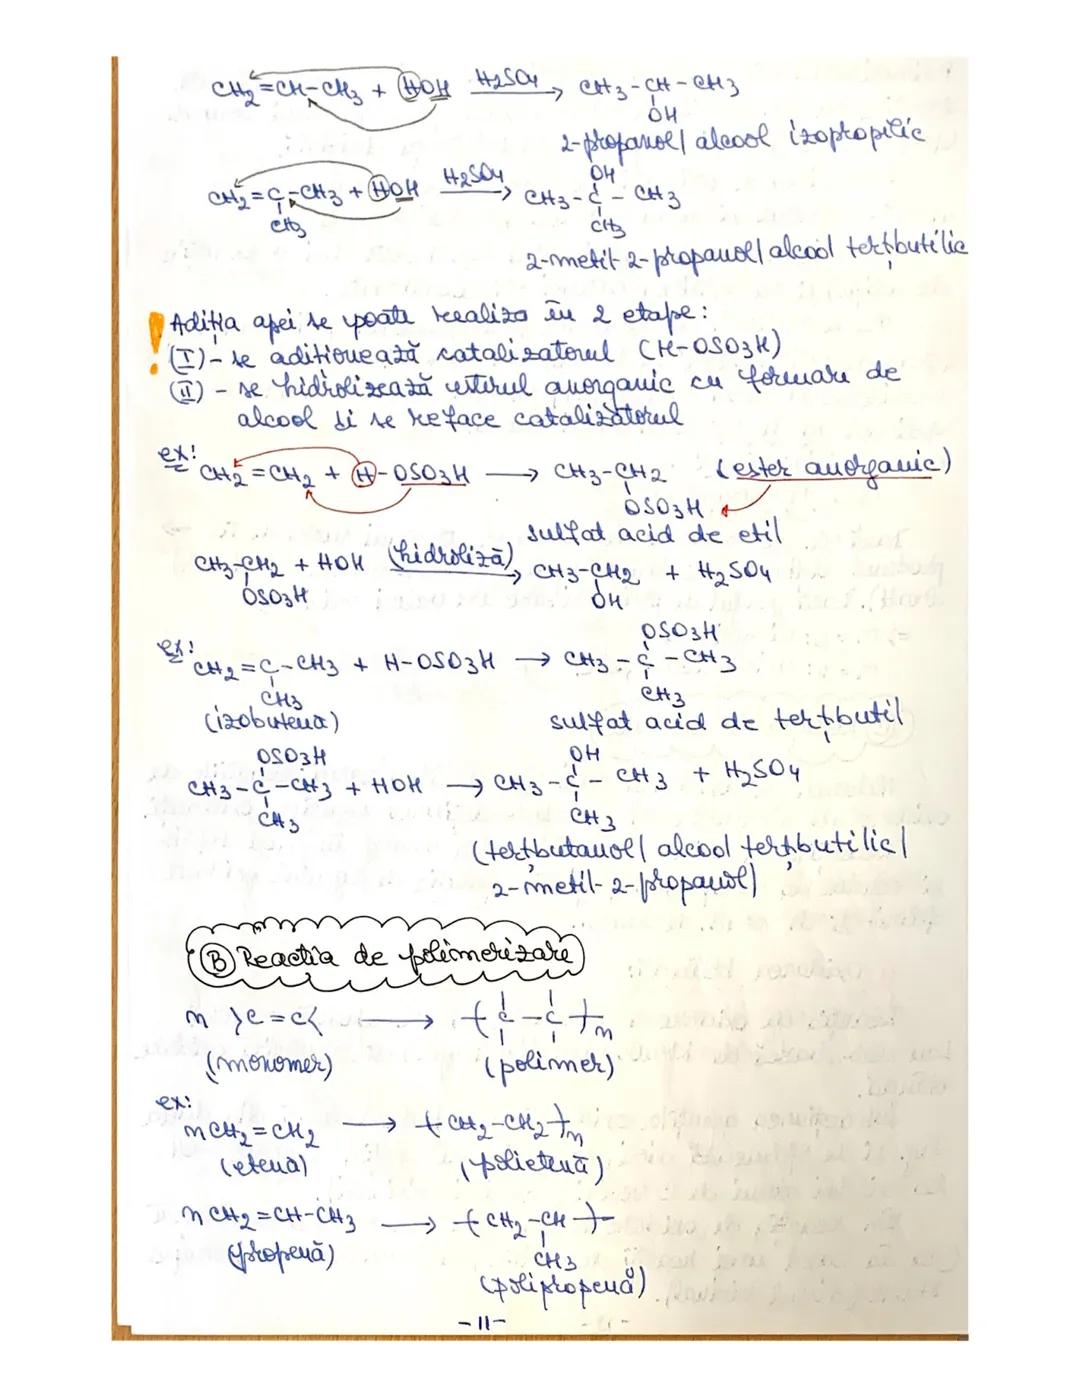 CH2=CH-CH3 + HOH H2SO4→ CH3-CH-CH3
OH
2-propanol/ alcool izopropilic
OH
CH2=C-CH3 + HOH H2SO4→ CH3-C-CH3
CH3 CH3
2-metil-2-propanol/ alcool terțbutilic
! Adiția apei se poate realiza în 2 etape:
(I)- se adiționează catalizatorul (H-OSO3H)
(II) - se hidrolizează esterul anorganic cu formare de
alcool și se reface catalizatorul
ex:
CH2=CH2 + H-OSO3H → CH3-CH2 (ester anorganic)
OSO3H
sulfat acid de etil
CH3-CH2 + HOH (hidroliză)→ CH3-CH2 + H2SO4
OSO3H OH
OSO3H
ex: CH2=C-CH3 + H-OSO3H → CH3-C-CH3
CH3 CH3
(izobutena) sulfat acid de terțbutil
OSO3H OH
CH3-C-CH3 + HOH → CH3-C-CH3 + H2SO4
CH3 CH3
(terțbutanol/ alcool terțbutilic/
2-metil-2-propanol)
(B) Reacția de polimerizare
n >C=C< → (C-C)n
(monomer) (polimer)
ex:
nCH2=CH2 → (CH2-CH2)n
(etenă) (polietenă)
nCH2=CH-CH3 → (CH2-CH)
(propenă) CH3
(polipropenă)
-11-